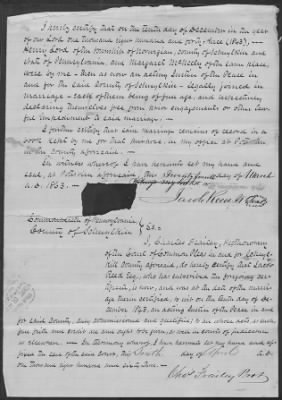 I hereby certify that on the tenth day of December in the year
of our Lord one thousand eight hundred and forty three (1843),
Henry Lord of the township of Norwegian, county of Schuylkill and
State of Pennsylvania, and Margaret of the same place,
were by me - then as now an acting Justice of the Peace in
and for the said County of Schuylkill - legally joined in
marriage - each of them being of full age, and respectively
declaring themselves free from prior engagements or other law-
ful impediment to said marriage.
I further certify that said marriage remains of record in a
book kept by me for that purpose, in my office at Pottsville
in the County aforesaid.
In witness whereof I have hereunto set my name and
seal, at Pottsville aforesaid, this day of March
A.D. 1863.
Jacob Reed
Commonwealth of Pennsylvania
County of Schuylkill } SS:
I, Charles Frailey, Prothonotary
of the Court of Common Pleas in and for Schuyl-
kill County aforesaid, do hereby certify that Jacob
Reed Esq, who has subscribed the foregoing cer-
tificate, is now, and was at the date of the marriage
therein certified, to wit on the tenth day of De-
cember 1843, an acting Justice of the Peace in and
for said County, duly commissioned and qualified; to all whose acts as such
full faith and credit are and ought to be given, as well in courts of judicature
as elsewhere. In testimony whereof, I have hereunto set my hand and af-
fixed the seal of the said Court, this day of A.D.
one thousand eight hundred and sixty three.
Chas Frailey Prot